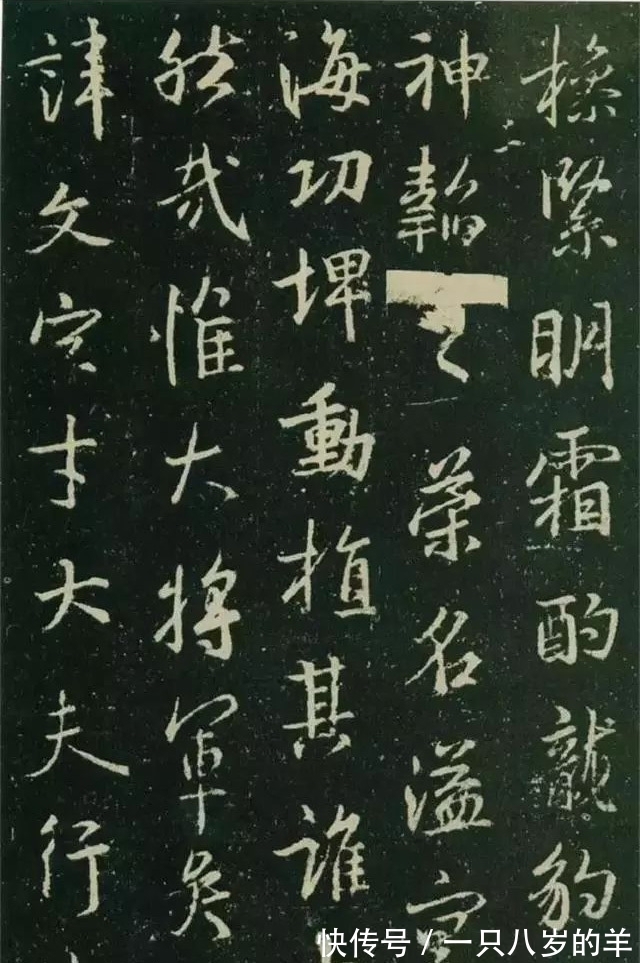 操緊明霜酌龍豹
神韜榮名溢
海功埤動植其誰
然哉惟大將軍矣
諱文字才大夫行
快传号/一只八岁的羊